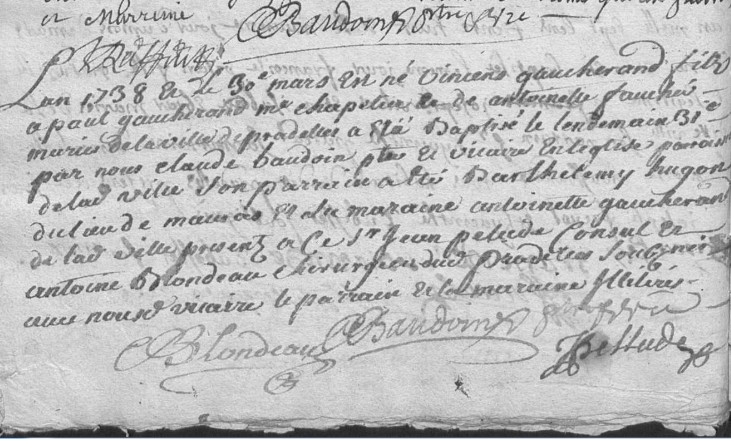 et Marrine
Baudoin ptre vicre
Raffin
L'an 1738 et le 30e mars est né vincens gaucherand fils
a paul gaucherand me chapelier et de antoinette fauché
mariés de la ville de pradelles a eté Baptisé le lendemain 31e
par nous claude baudoin ptre et vicaire en l'eglise parroisse
de lad ville son parrain a eté Barthelemy hugon
du lieu de mauras et la maraine antoinette gaucherand
de lad ville presentz a ce sr Jean pelude Consul et
antoine Blondeau chirurgien dud Pradelles soussignés
avec nousd vicaire le parrain et la maraine Illiterés
Blondeau Baudoin ptre vicre
Pellude